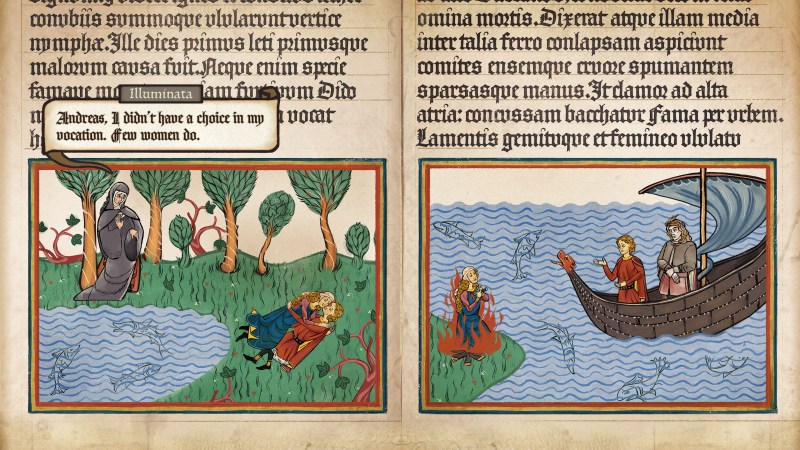 conubiis summoque ulularunt vertice
nymphæ. Ille dies primus leti primusque
malorum causa fuit. Neque enim specie
famave
Dido
vocat
Illuminata
Andreas, I didn't have a choice in my
vocation. Few women do.
omina mortis. Dixerat atque illam media
inter talia ferro conlapsam aspiciunt
comites ensemque cruore spumantem
sparsasque manus. It clamor ad alta
atria: concussam bacchatur Fama per urbem.
Lamentis gemituque et femineo ululatu